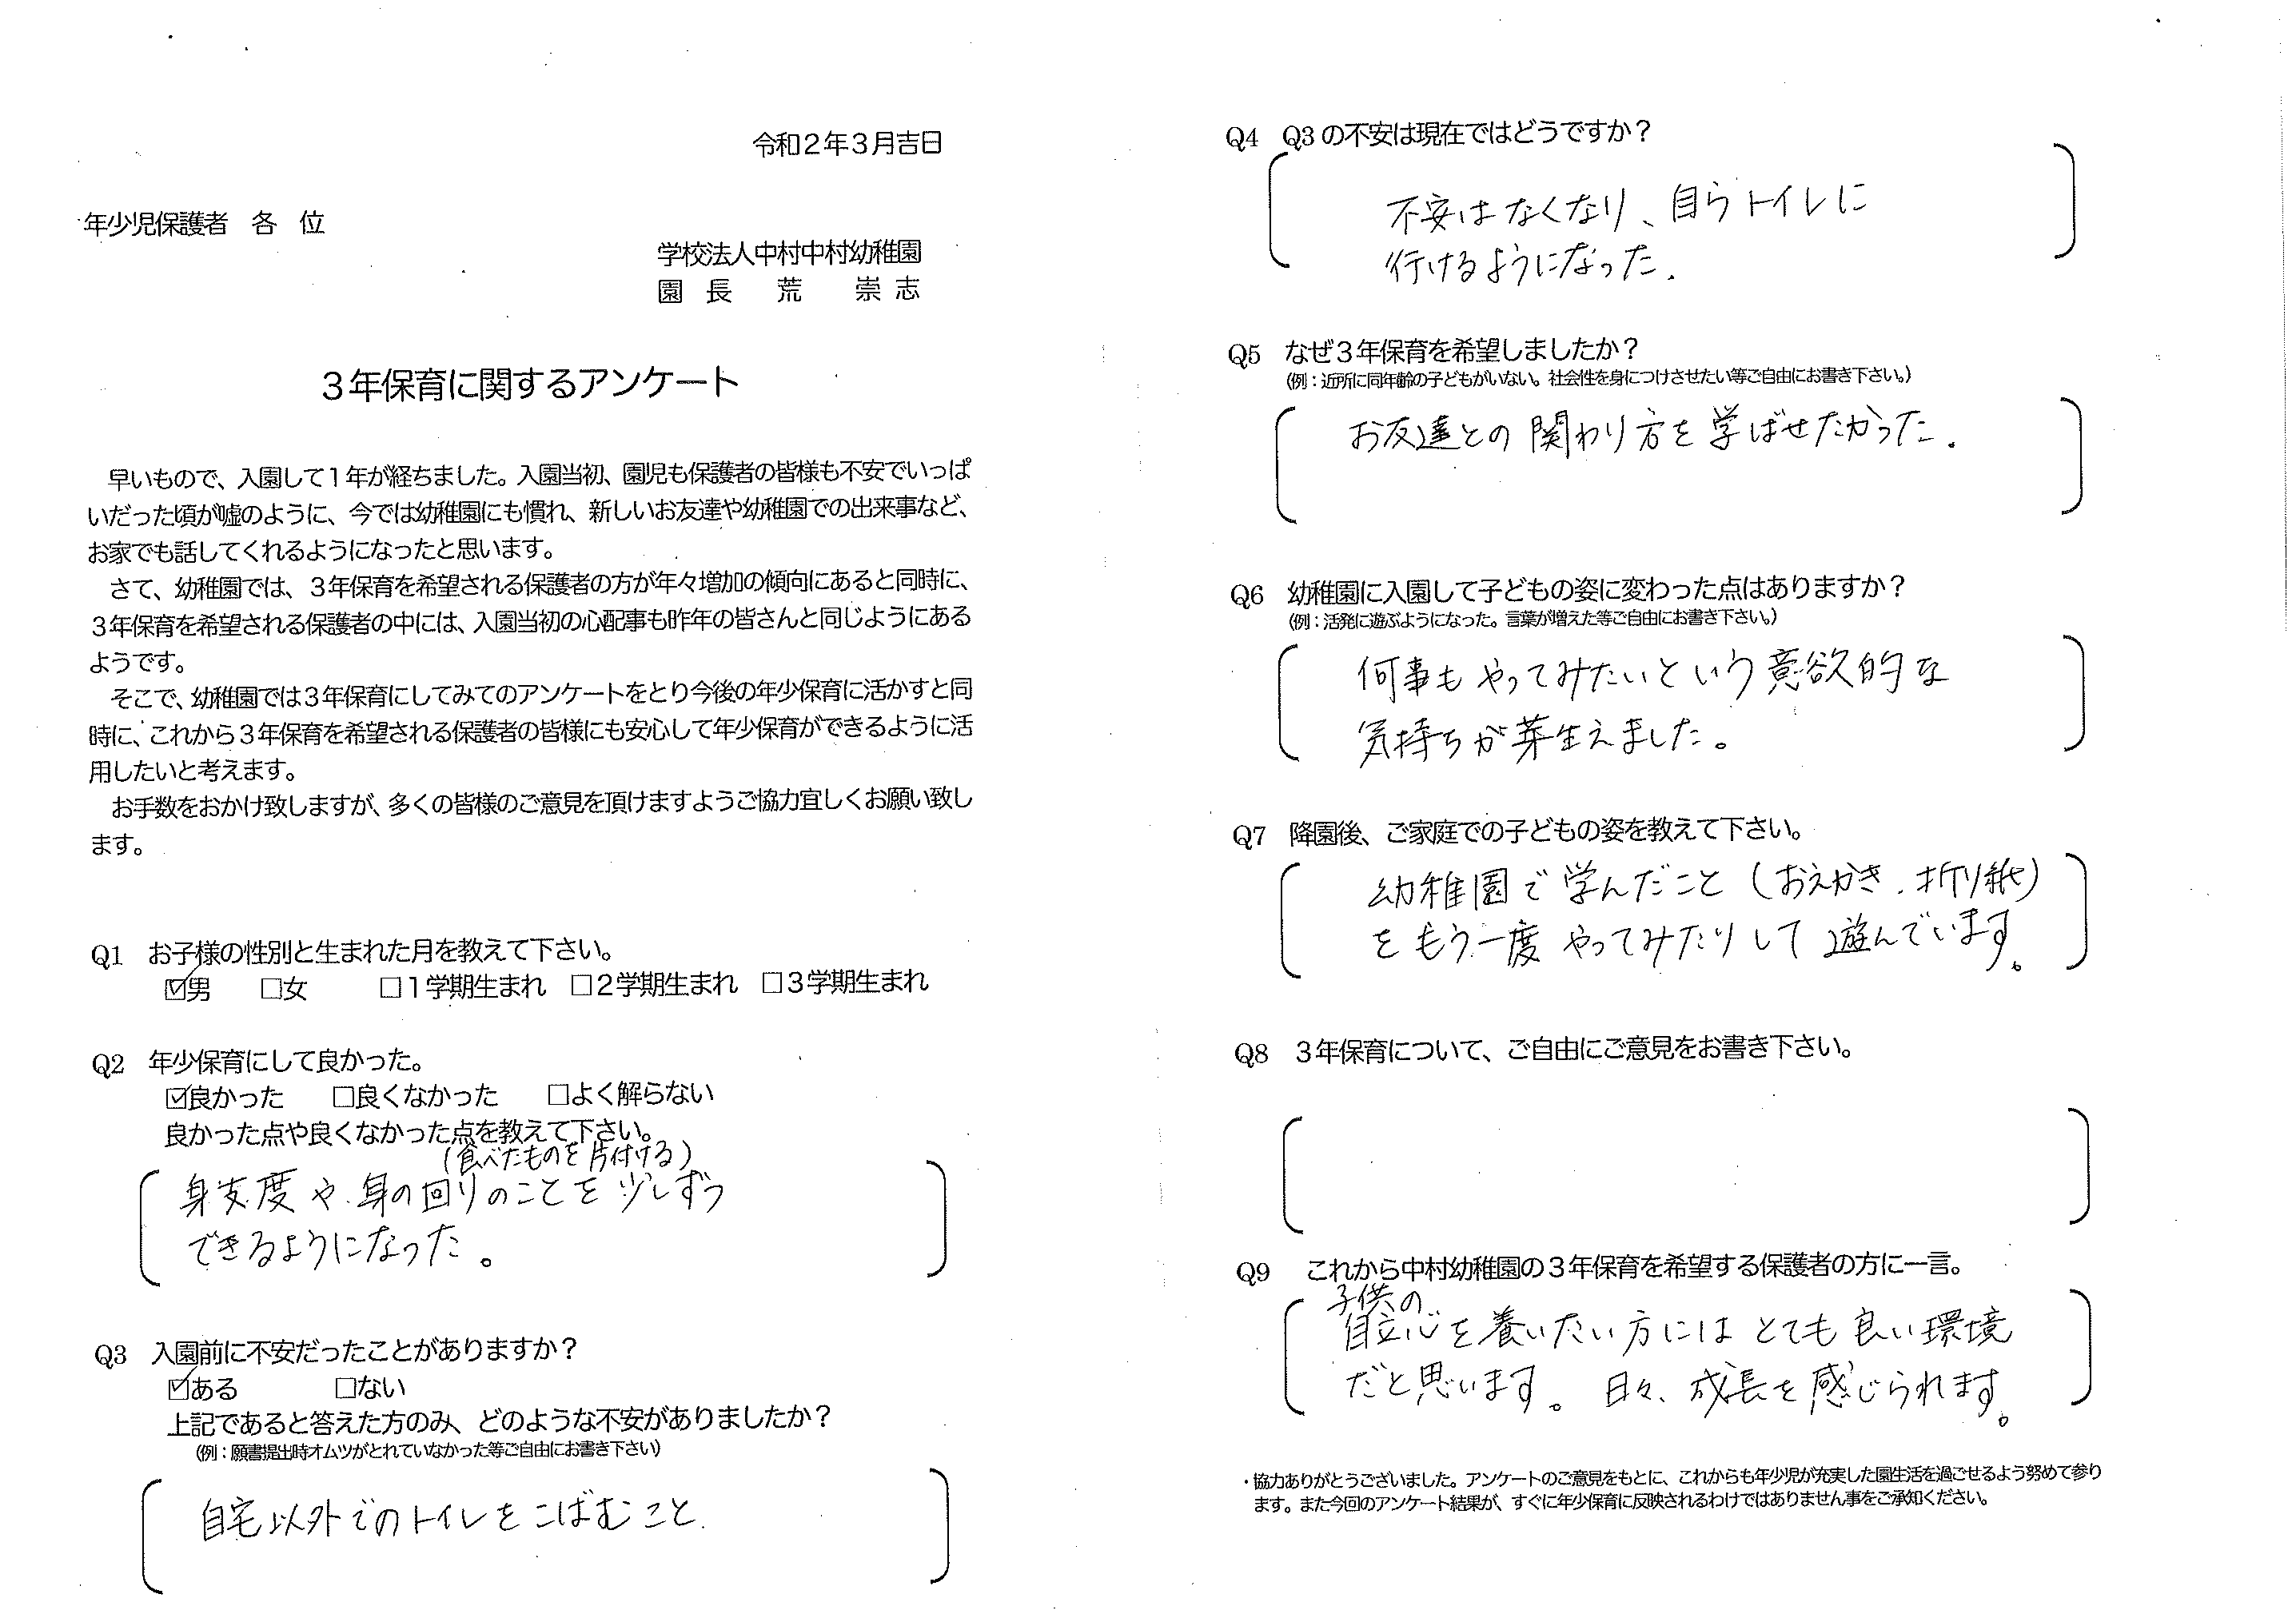 令和２年３月吉日
年少児保護者　各　位
学校法人中村中村幼稚園
園　長　　荒　　崇　志
３年保育に関するアンケート
早いもので、入園して１年が経ちました。入園当初、園児も保護者の皆様も不安でいっぱ
いだった頃が嘘のように、今では幼稚園にも慣れ、新しいお友達や幼稚園での出来事など、
お家でも話してくれるようになったと思います。
さて、幼稚園では、３年保育を希望される保護者の方が年々増加の傾向にあると同時に、
３年保育を希望される保護者の中には、入園当初の心配事も昨年の皆さんと同じようにある
ようです。
そこで、幼稚園では３年保育にしてみてのアンケートをとり今後の年少保育に活かすと同
時に、これから３年保育を希望される保護者の皆様にも安心して年少保育ができるように活
用したいと考えます。
お手数をおかけ致しますが、多くの皆様のご意見を頂けますようご協力宜しくお願い致し
ます。
Q1　お子様の性別と生まれた月を教えて下さい。
☑男　　□女　　　□１学期生まれ　□２学期生まれ　□３学期生まれ
Q2　年少保育にして良かった。
☑良かった　　□良くなかった　　□よく解らない
良かった点や良くなかった点を教えて下さい。
（食べたものを片付ける）
身支度や身の回りのことを少しずつ
できるようになった。
Q3　入園前に不安だったことがありますか？
☑ある　　　　□ない
上記であると答えた方のみ、どのような不安がありましたか？
（例：願書提出時オムツがとれていなかった等ご自由にお書き下さい）
自宅以外でのトイレをこばむこと.
Q4　Q3の不安は現在ではどうですか？
不安はなくなり、自らトイレに
行けるようになった.
Q5　なぜ３年保育を希望しましたか？
（例：近所に同年齢の子どもがいない。社会性を身につけさせたい等ご自由にお書き下さい。）
お友達との関わり方を学ばせたかった.
Q6　幼稚園に入園して子どもの姿に変わった点はありますか？
（例：活発に遊ぶようになった。言葉が増えた等ご自由にお書き下さい。）
何事もやってみたいという意欲的な
気持ちが芽生えました。
Q7　降園後、ご家庭での子どもの姿を教えて下さい。
幼稚園で学んだこと（おえかき.折り紙）
をもう一度やってみたりして遊んでいます。
Q8　３年保育について、ご自由にご意見をお書き下さい。
Q9　これから中村幼稚園の３年保育を希望する保護者の方に一言。
子供の
自立心を養いたい方にはとても良い環境
だと思います。日々、成長を感じられます。
・協力ありがとうございました。アンケートのご意見をもとに、これからも年少児が充実した園生活を過ごせるよう努めて参り
ます。また今回のアンケート結果が、すぐに年少保育に反映されるわけではありません事をご承知ください。